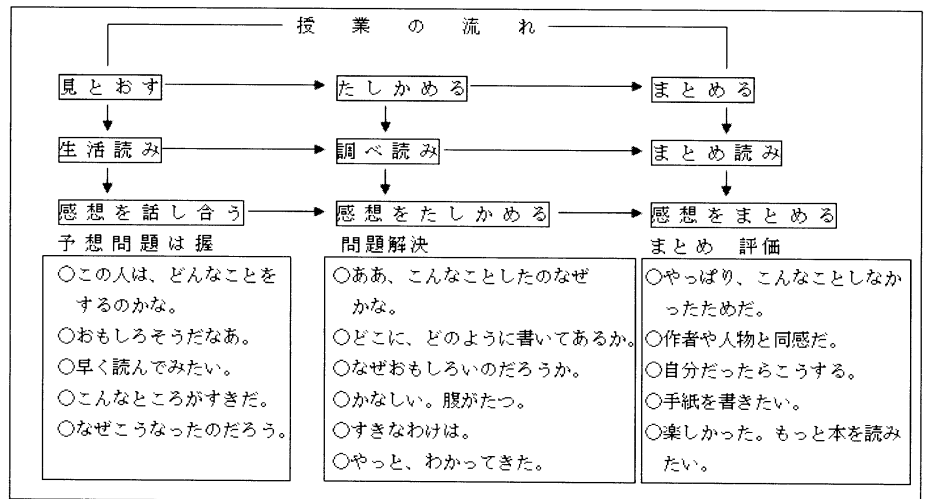 授業の流れ
見とおす
たしかめる
まとめる
生活読み
調べ読み
まとめ読み
感想を話し合う
感想をたしかめる
感想をまとめる
予想問題は握
問題解決
まとめ 評価
○この人は、どんなことを
するのかな。
○おもしろそうだなあ。
○早く読んでみたい。
○こんなところがすきだ。
○なぜこうなったのだろう。
○ああ、こんなことしたのなぜ
かな。
○どこに、どのように書いてあるか。
○なぜおもしろいのだろうか。
○かなしい。腹がたつ。
○すきなわけは。
○やっと、わかってきた。
○やっぱり、こんなことしなか
ったためだ。
○作者や人物と同感だ。
○自分だったらこうする。
○手紙を書きたい。
○楽しかった。もっと本を読み
たい。